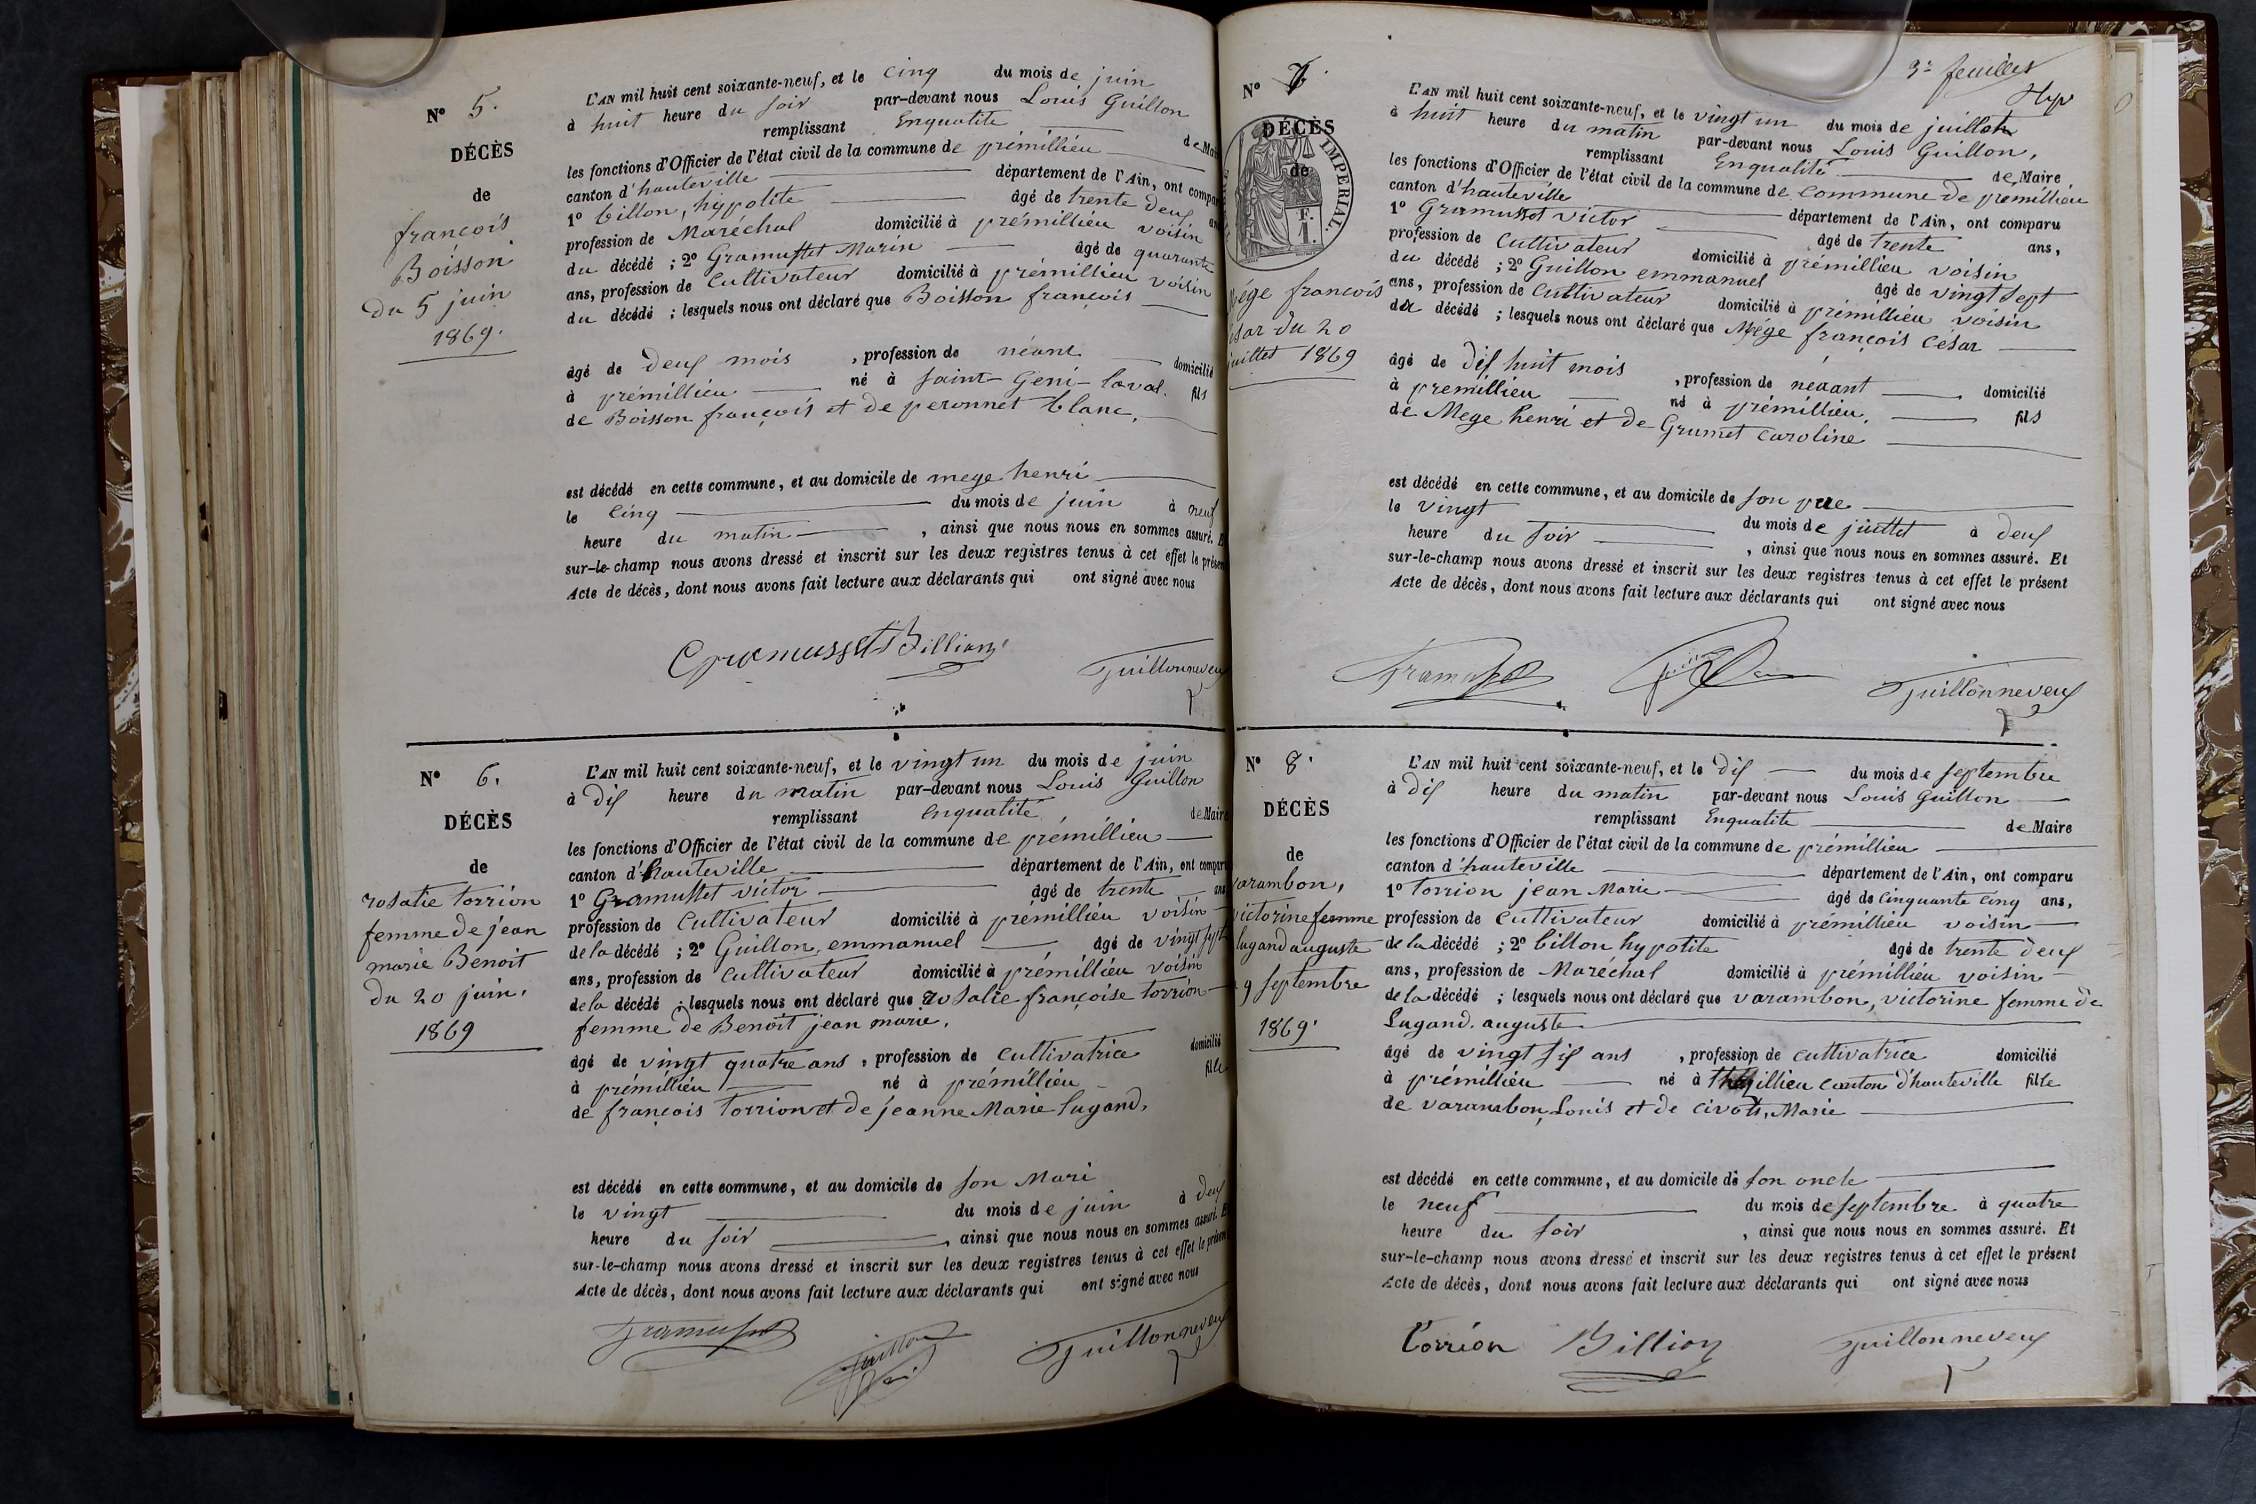 N° 5.
DÉCÈS
de
françois
Boisson
du 5 juin
1869.
L'AN mil huit cent soixante-neuf, et le cinq du mois de juin
à huit heure du soir par-devant nous Louis Guillon
remplissant Enqualité de Mai
les fonctions d'Officier de l'état civil de la commune de prémillieu
canton d'hauteville département de l'Ain, ont compa
1° billon, hypolite âgé de trente deux an
profession de Maréchal domicilié à prémillieu voisin
du décédé ; 2° Gramusset Marin âgé de quarante
ans, profession de Cultivateur domicilié à prémillieu voisin
du décédé ; lesquels nous ont déclaré que Boisson françois
âgé de deux mois , profession de néant domicilié
à prémillieu né à saint-Geni-laval. fils
de Boisson françois et de peronnet blanc,
est décédé en cette commune, et au domicile de mege henri
le cinq du mois de juin à neuf
heure du matin , ainsi que nous nous en sommes assuré. E
sur-le-champ nous avons dressé et inscrit sur les deux registres tenus à cet effet le présen
Acte de décès, dont nous avons fait lecture aux déclarants qui ont signé avec nous
Gramusset Billion Guillonneveu
N° 6.
DÉCÈS
de
rosalie torrion
femme de jean
marie Benoit
du 20 juin.
1869
L'AN mil huit cent soixante-neuf, et le vingt un du mois de juin
à dix heure du matin par-devant nous Louis Guillon
remplissant Enqualité de Maire
les fonctions d'Officier de l'état civil de la commune de prémillieu
canton d'hauteville département de l'Ain, ont comparu
1° Gramusset victor âgé de trente ans
profession de Cultivateur domicilié à prémillieu voisin
de la décédé ; 2° Guillon, emmanuel âgé de vingt sept
ans, profession de Cultivateur domicilié à prémillieu voisin
de la décédé ; lesquels nous ont déclaré que rosalie françoise torrion
femme de Benoit jean marie.
âgé de vingt quatre ans , profession de cultivatrice domicilié
à prémillieu né à prémillieu fille
de françois torrion et de jeanne Marie lugand,
est décédé en cette commune, et au domicile de son Mari
le vingt du mois de juin à deux
heure du soir , ainsi que nous nous en sommes assuré. E
sur-le-champ nous avons dressé et inscrit sur les deux registres tenus à cet effet le présen
Acte de décès, dont nous avons fait lecture aux déclarants qui ont signé avec nous
Gramusset Guillon Guillonneveu
3e feuillet
N° 7.
DÉCÈS
de
IMPÉRIAL.
F.
1.
Mége françois
César du 20
juillet 1869
L'AN mil huit cent soixante-neuf, et le vingt un du mois de juillet
à huit heure du matin par-devant nous Louis Guillon,
remplissant Enqualité de Maire
les fonctions d'Officier de l'état civil de la commune de commune de prémillieu
canton d'hauteville département de l'Ain, ont comparu
1° Gramusset victor âgé de trente ans,
profession de Cultivateur domicilié à prémillieu voisin
du décédé ; 2° Guillon emmanuel âgé de vingt sept
ans, profession de Cultivateur domicilié à prémillieu voisin
du décédé ; lesquels nous ont déclaré que Mége françois César
âgé de dix huit mois , profession de neaant domicilié
à premillieu né à prémillieu. fils
de Mege henri et de Grumet Caroline
est décédé en cette commune, et au domicile de son pere
le vingt du mois de juillet à deux
heure du soir , ainsi que nous nous en sommes assuré. Et
sur-le-champ nous avons dressé et inscrit sur les deux registres tenus à cet effet le présent
Acte de décès, dont nous avons fait lecture aux déclarants qui ont signé avec nous
Gramusset Guillon Guillonneveu
N° 8.
DÉCÈS
de
varambon,
victorine femme
lugand auguste
9 septembre
1869.
L'AN mil huit cent soixante-neuf, et le dix du mois de septembre
à dix heure du matin par-devant nous Louis Guillon
remplissant Enqualité de Maire
les fonctions d'Officier de l'état civil de la commune de prémillieu
canton d'hauteville département de l'Ain, ont comparu
1° Torrion jean Marie âgé de cinquante cinq ans,
profession de Cultivateur domicilié à prémillieu voisin
de la décédé ; 2° billon hypolite âgé de trente deux
ans, profession de Maréchal domicilié à prémillieu voisin
de la décédé ; lesquels nous ont déclaré que varambon, victorine femme de
Lugand. auguste
âgé de vingt six ans , profession de cultivatrice domicilié
à prémillieu né à thézillieu canton d'hauteville fille
de varambon, Louis et de civot, Marie
est décédé en cette commune, et au domicile de son oncle
le neuf du mois de septembre à quatre
heure du soir , ainsi que nous nous en sommes assuré. Et
sur-le-champ nous avons dressé et inscrit sur les deux registres tenus à cet effet le présent
Acte de décès, dont nous avons fait lecture aux déclarants qui ont signé avec nous
Torrion Billion Guillonneveu